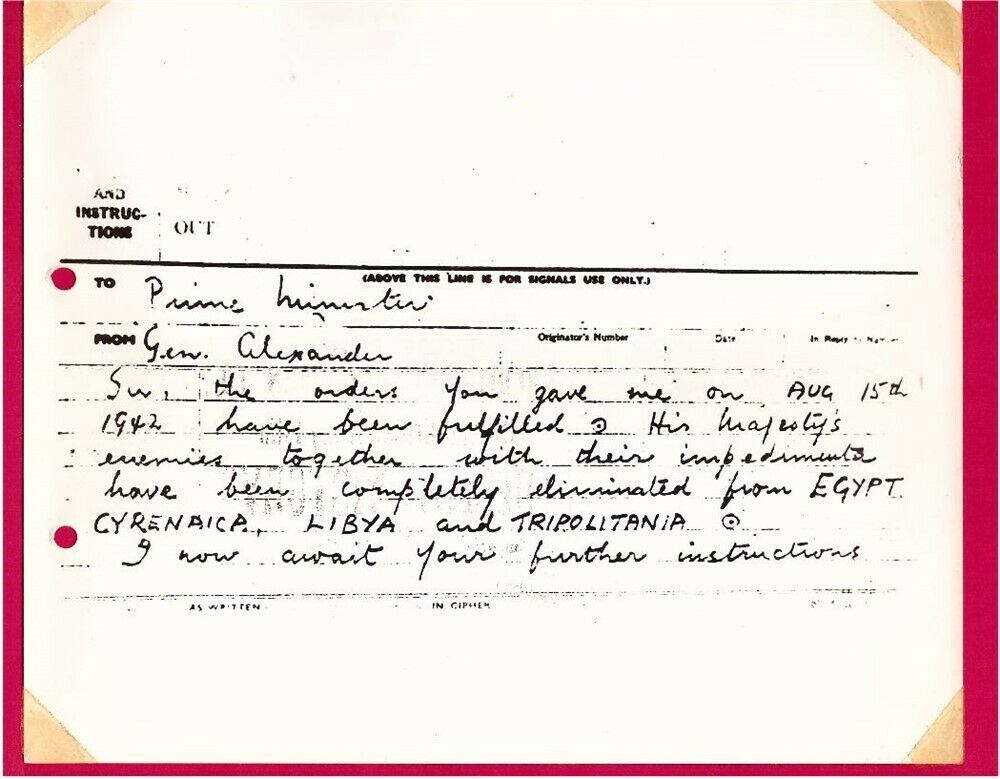 AND
INSTRUC-
TIONS
OUT
(ABOVE THIS LINE IS FOR SIGNALS USE ONLY.)
TO Prime Minister
FROM Gen. Alexander Originator's Number Date In Reply to Number
Sir, the orders you gave me on AUG 15th
1942 have been fulfilled ⊙ His Majesty's
enemies together with their impedimenta
have been completely eliminated from EGYPT
CYRENAICA, LIBYA and TRIPOLITANIA ⊙
I now await your further instructions
AS WRITTEN IN CIPHER